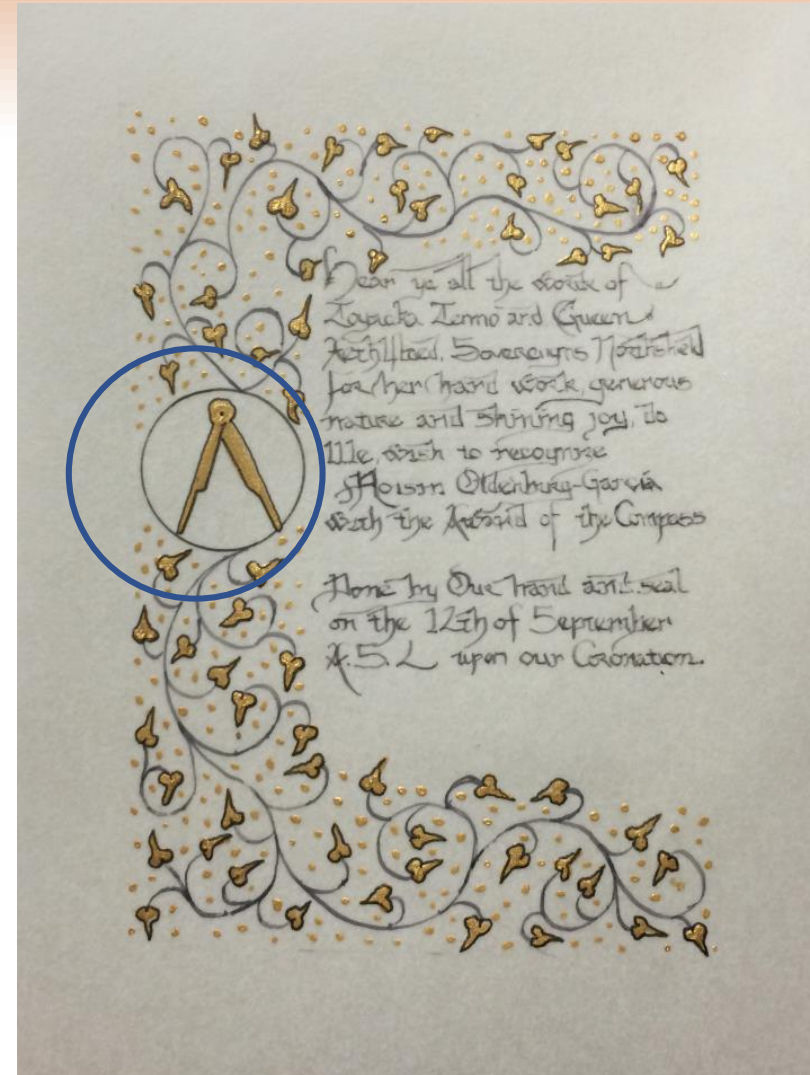 Hear ye all the words of
Toyuchi Tenno and Queen
Sovereigns Northshield
for her hard work, generous
nature and shining joy, do
We, wish to recognize
Roisin Oldenburg-Garcia
with the Award of the Compass
Done by Our hand and seal
on the 12th of September
A.S. L upon our Coronation.